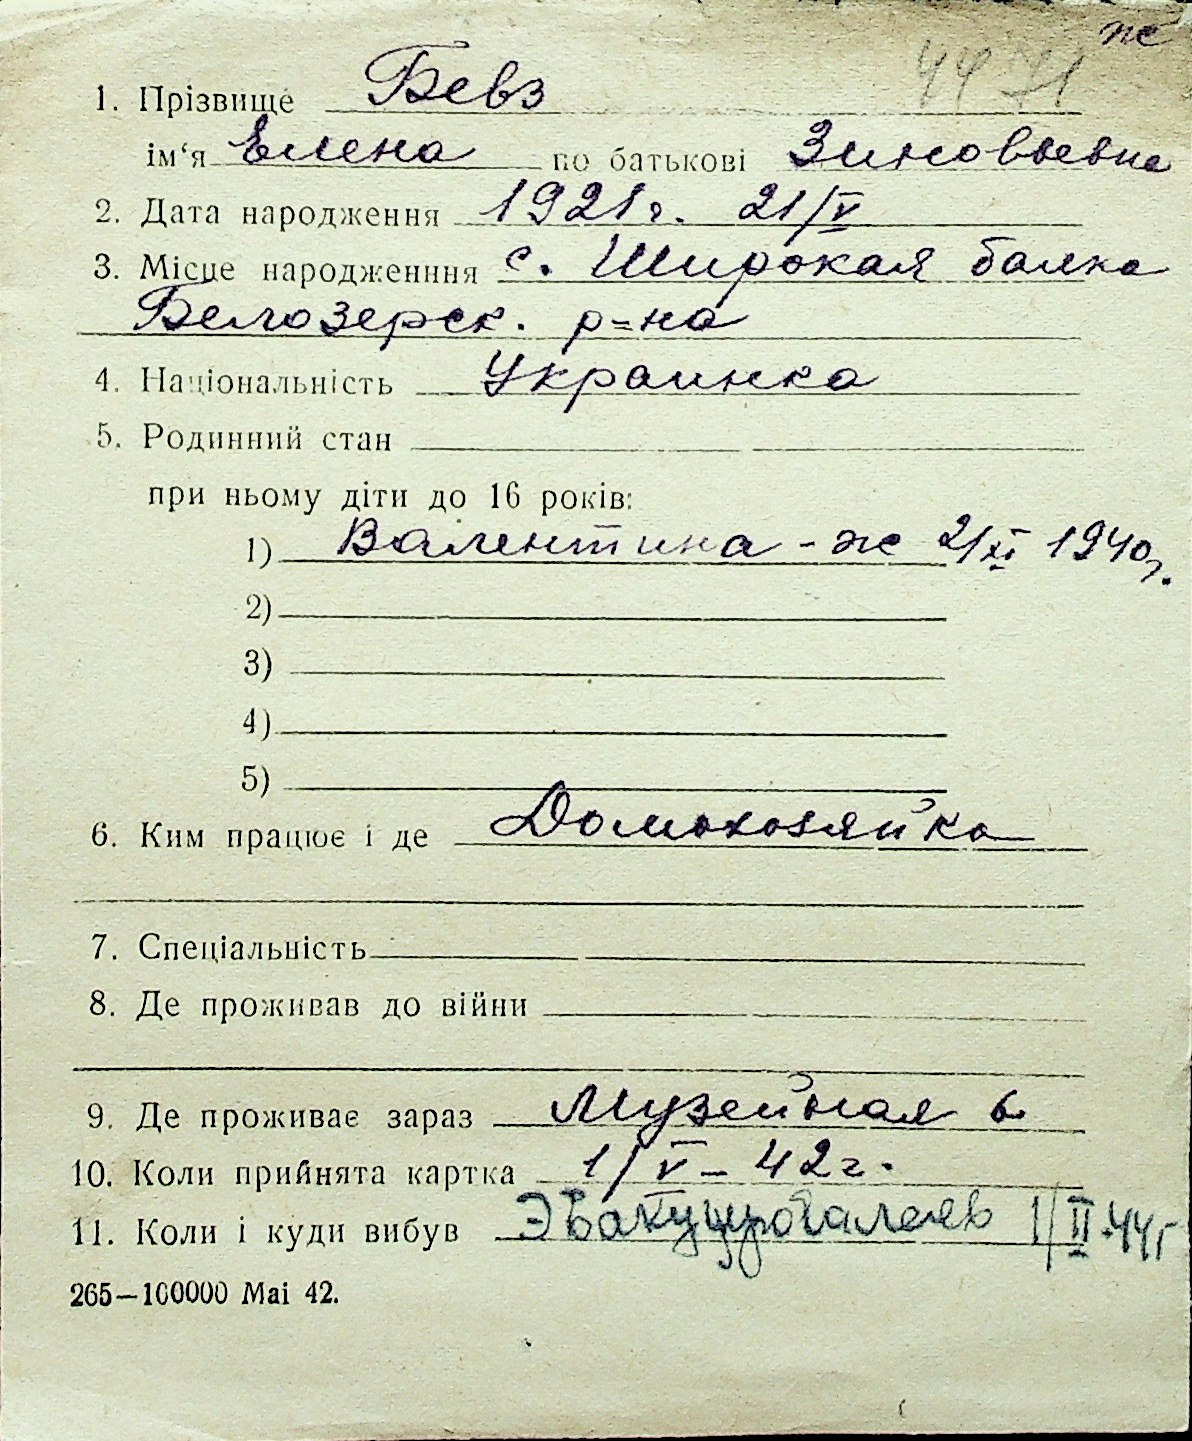 ж
4471
1. Прізвище Бевз
ім‘я Елена по батькові Зиновьевна
2. Дата народження 1921г. 21/V
3. Місце народженння с. Широкая балка
Белозерск. р=на
4. Національність Украинка
5. Родинний стан
при ньому діти до 16 років:
1) Валентина - ж 21/XI 1940г.
2)
3)
4)
5)
6. Ким працює і де Домохозяйка
7. Спеціальність
8. Де проживав до війни
9. Де проживає зараз Музейная 6
10. Коли прийнята картка 1/V - 42г.
11. Коли і куди вибув Эвакуировалась 1/II-44г
265—100000 Mai 42.